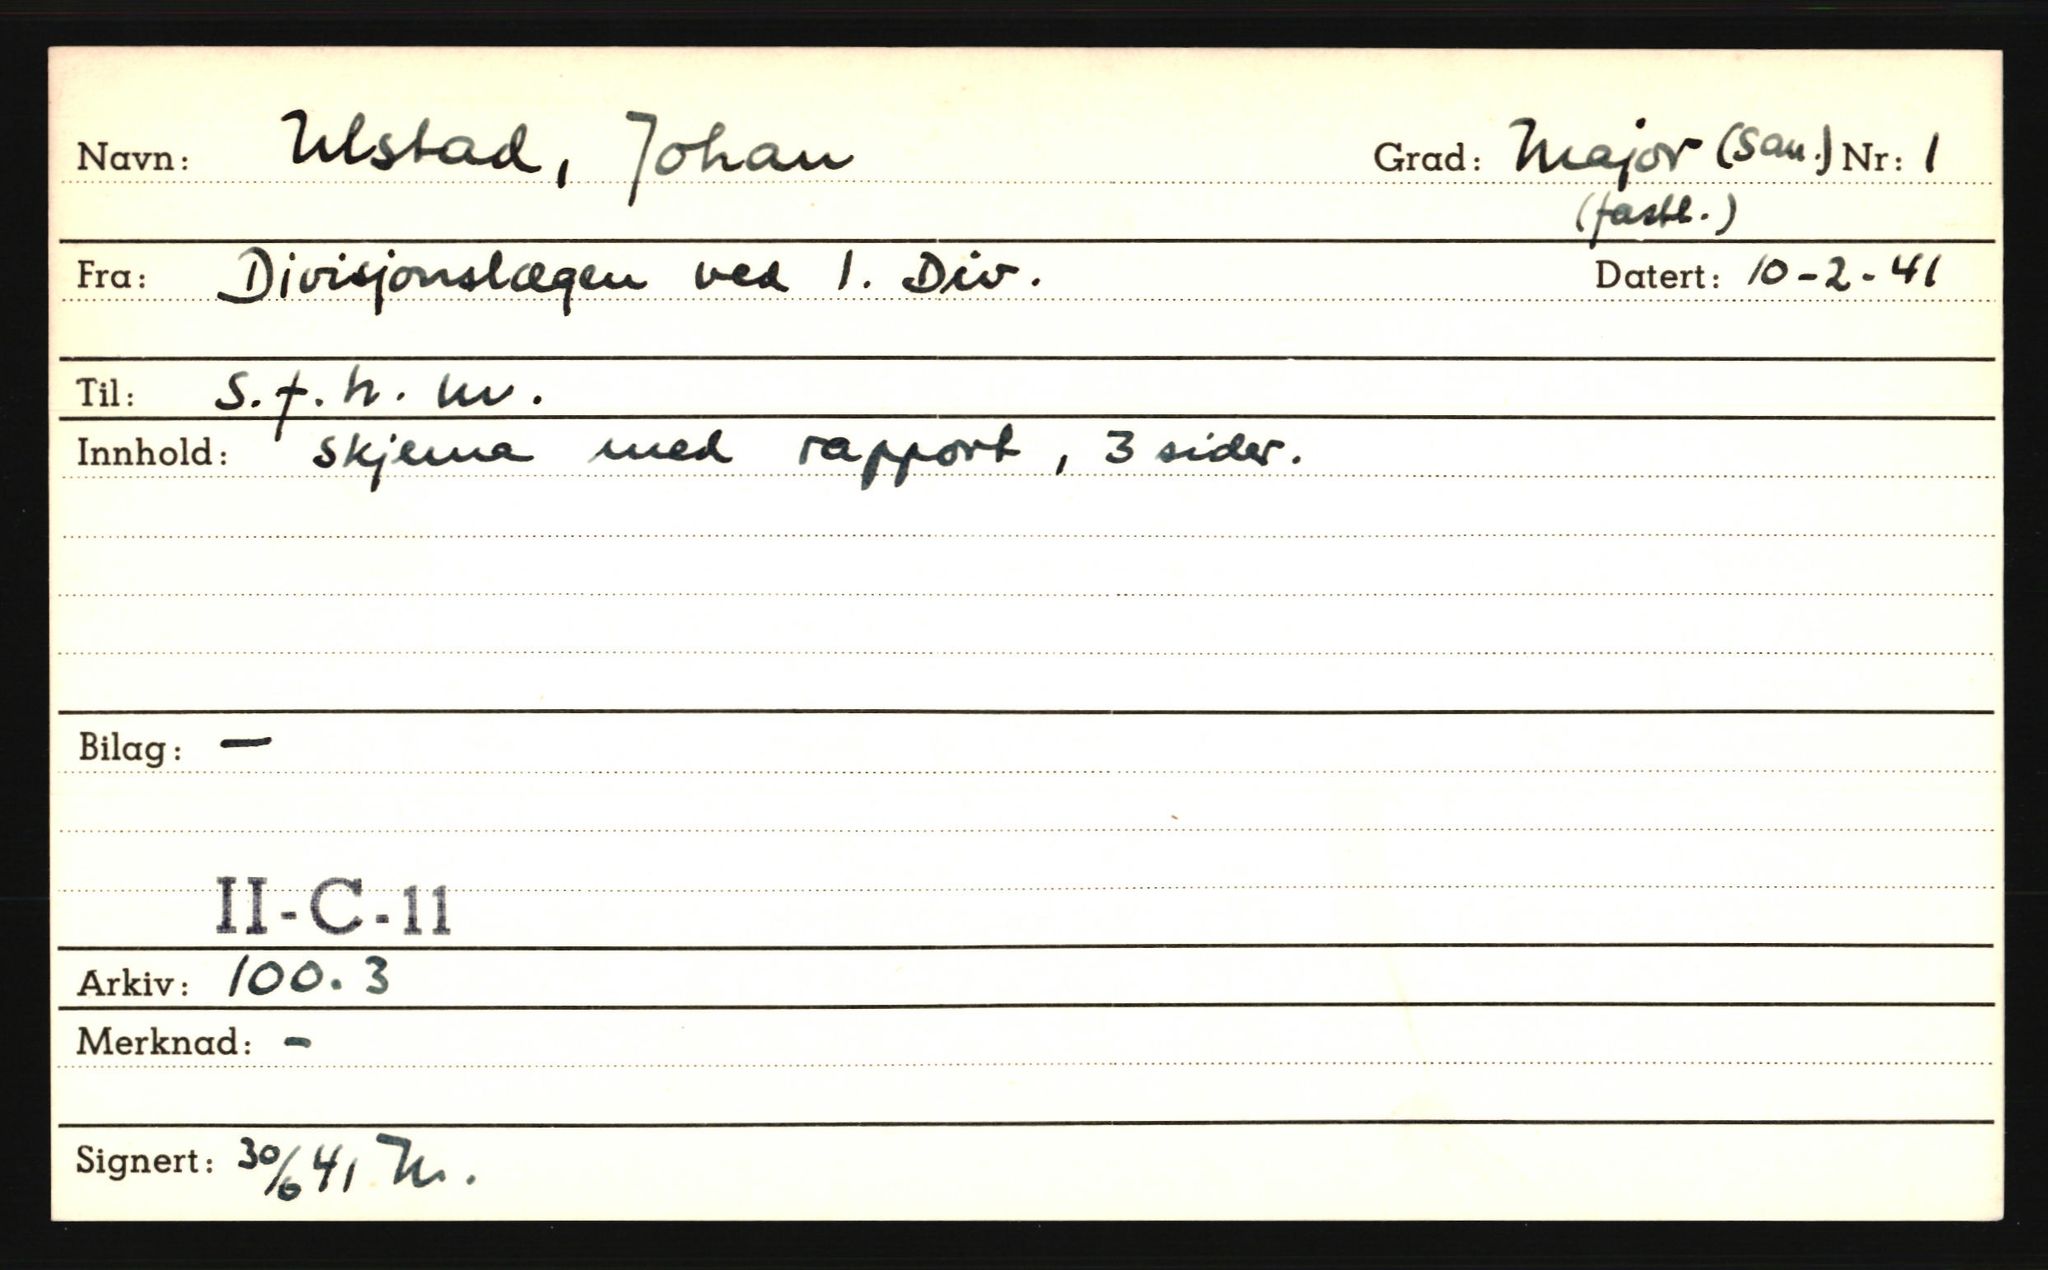 Navn: Ulstad, Johan Grad: Major (San.) Nr: 1
(fastl.)
Fra: Divisjonslægen ved 1. Div. Datert: 10-2-41
Til: S.f.h.
Innhold: Skjema med rapport, 3 sider.
Bilag: —
II-C-11
Arkiv: 100.3
Merknad: -
Signert: 30/6 41